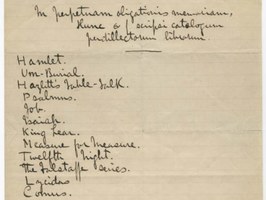 In perpetuam obligationis memoriam,
Hunc accipe catalogum
perdilectorum librorum.
Hamlet.
Urn-Burial.
Hazlitt's Table-Talk.
Psalms.
Job.
Isaiah.
King Lear.
Measure for Measure.
Twelfth Night.
The Falstaff series.
Lycidas
Comus.